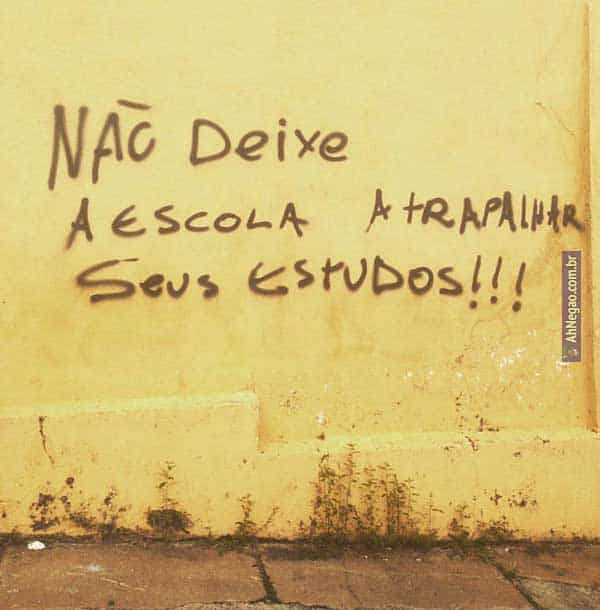 NÃO Deixe
A ESCOLA ATRAPALHAR
Seus ESTUDOS!!!
AhNegao.com.br